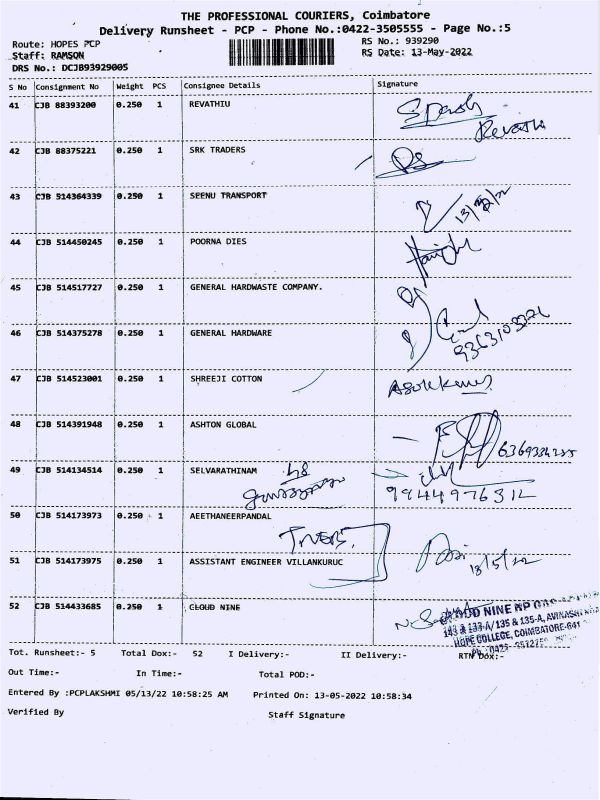 THE PROFESSIONAL COURIERS, Coimbatore
Delivery Runsheet - PCP - Phone No.:0422-3505555 - Page No.:5
Route: HOPES PCP RS No.: 939290
Staff: RAMSON RS Date: 13-May-2022
DRS No.: DCJB93929005
S No Consignment No Weight PCS Consignee Details Signature
41 CJB 88393200 0.250 1 REVATHIU
Revathi
42 CJB 88375221 0.250 1 SRK TRADERS
43 CJB 514364339 0.250 1 SEENU TRANSPORT
44 CJB 514450245 0.250 1 POORNA DIES
45 CJB 514517727 0.250 1 GENERAL HARDWASTE COMPANY.
46 CJB 514375278 0.250 1 GENERAL HARDWARE
47 CJB 514523001 0.250 1 SHREEJI COTTON
48 CJB 514391948 0.250 1 ASHTON GLOBAL
49 CJB 514134514 0.250 1 SELVARATHINAM
9944976312
50 CJB 514173973 0.250 1 AEETHANEERPANDAL
TNEB
51 CJB 514173975 0.250 1 ASSISTANT ENGINEER VILLANKURUC
13/5/22
52 CJB 514433685 0.250 1 CLOUD NINE
143 & 133-A/ 135 & 135-A, AVINASHI
HOPE COLLEGE, COIMBATORE-641
Tot. Runsheet:- 5 Total Dox:- 52 I Delivery:- II Delivery:- RTN Dox:-
Out Time:- In Time:- Total POD:-
Entered By :PCPLAKSHMI 05/13/22 10:58:25 AM Printed On: 13-05-2022 10:58:34
Verified By Staff Signature